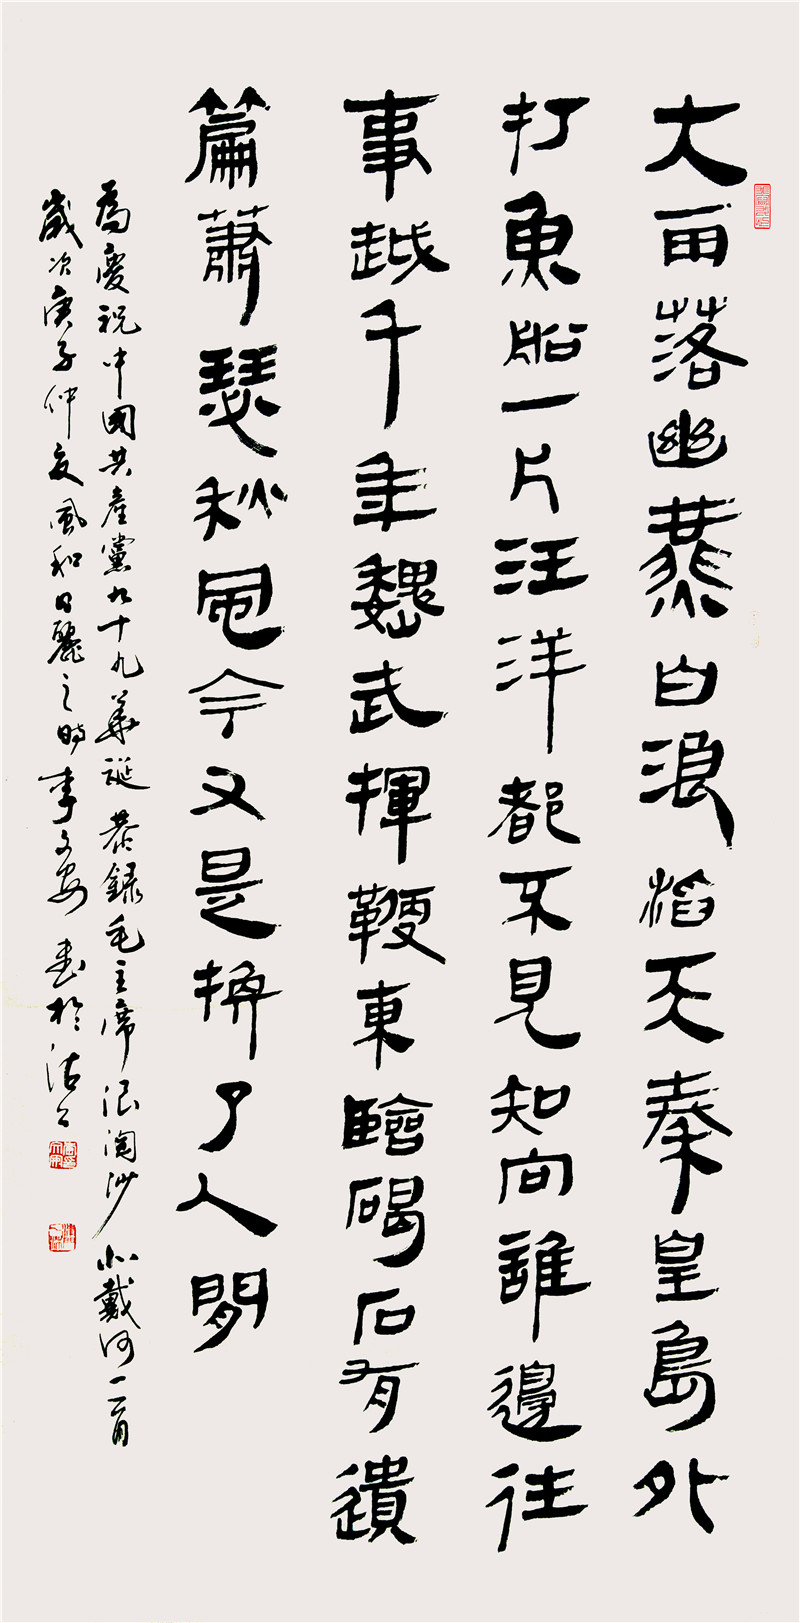 大雨落幽燕白浪滔天秦皇島外
打魚船一片汪洋都不見知向誰邊往
事越千年魏武揮鞭東臨碣石有遺
篇蕭瑟秋風今又是換了人間
為慶祝中國共產黨九十九華誕恭錄毛主席浪淘沙北戴河一首
歲次庚子仲夏風和日麗之時李文安書於沽上